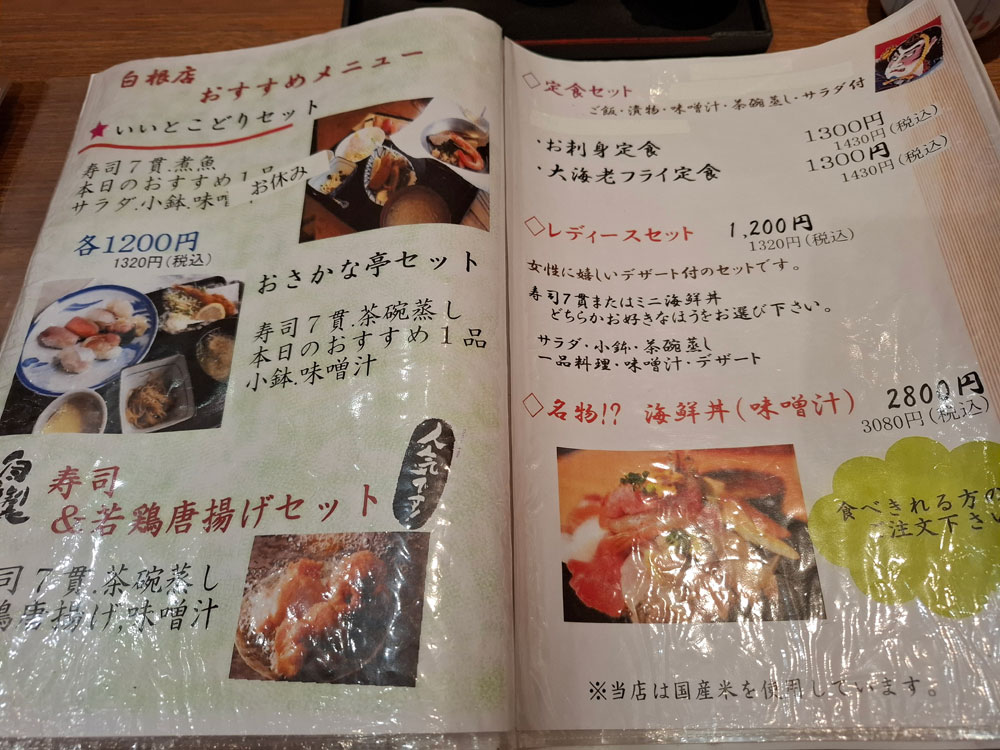 白根店
おすすめメニュー
★いいとこどりセット
寿司7貫.煮魚
本日のおすすめ1品
サラダ.小鉢.味噌
お休み
各1200円
1320円(税込)
おさかな亭セット
寿司7貫.茶碗蒸し
本日のおすすめ1品
小鉢.味噌汁
人気です
自製
寿司
&若鶏唐揚げセット
司7貫.茶碗蒸し
鶏唐揚げ,味噌汁
◇定食セット
ご飯・漬物・味噌汁・茶碗蒸し・サラダ付
・お刺身定食 1300円
1430円(税込)
・大海老フライ定食 1300円
1430円(税込)
◇レディースセット 1,200円
1320円(税込)
女性に嬉しいデザート付のセットです。
寿司7貫またはミニ海鮮丼
どちらかお好きなほうをお選び下さい。
サラダ・小鉢・茶碗蒸し
一品料理・味噌汁・デザート
◇名物!? 海鮮丼(味噌汁) 2800円
3080円(税込)
食べきれる方の
ご注文下さい
※当店は国産米を使用しています。